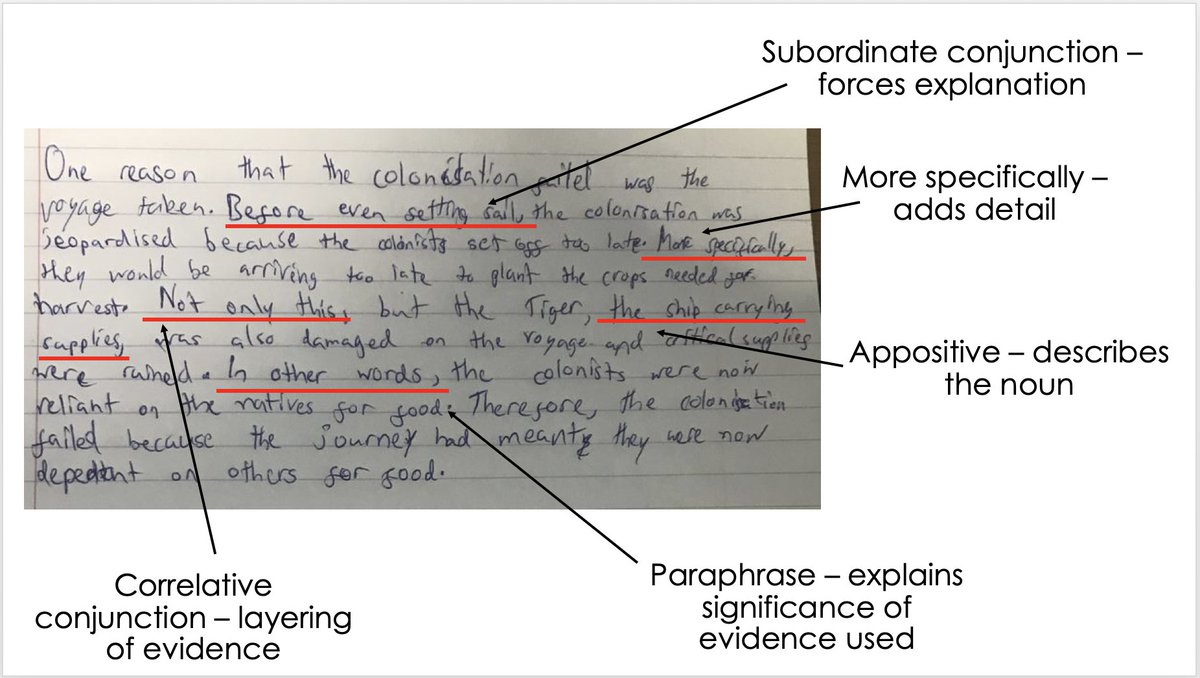 Subordinate conjunction –
forces explanation
More specifically –
adds detail
One reason that the colonisation failed was the
voyage taken. Before even setting sail, the colonisation was
jeopardised because the colonists set off too late. More specifically,
they would be arriving too late to plant the crops needed for
harvest. Not only this, but the Tiger, the ship carrying
supplies, was also damaged on the voyage and critical supplies
were ruined. In other words, the colonists were now
reliant on the natives for food. Therefore, the colonisation
failed because the journey had meant they were now
on others for food.
Appositive – describes
the noun
Correlative
conjunction – layering
of evidence
Paraphrase – explains
significance of
evidence used